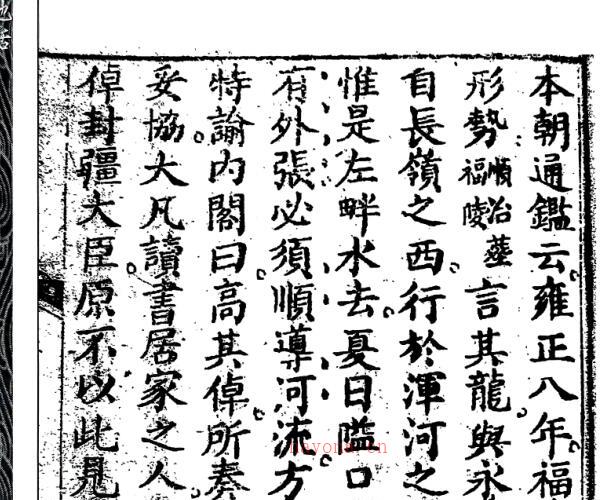 本朝通鑑云雍正八年福
形勢順治葬福陵言其龍與永
自長嶺之西行於渾河之
惟是左畔水去夏日隘口
有外張必須順導河流方
特諭內閣曰高其倬所奏
妥協大凡讀書居家之人
倬封疆大臣原不以此見